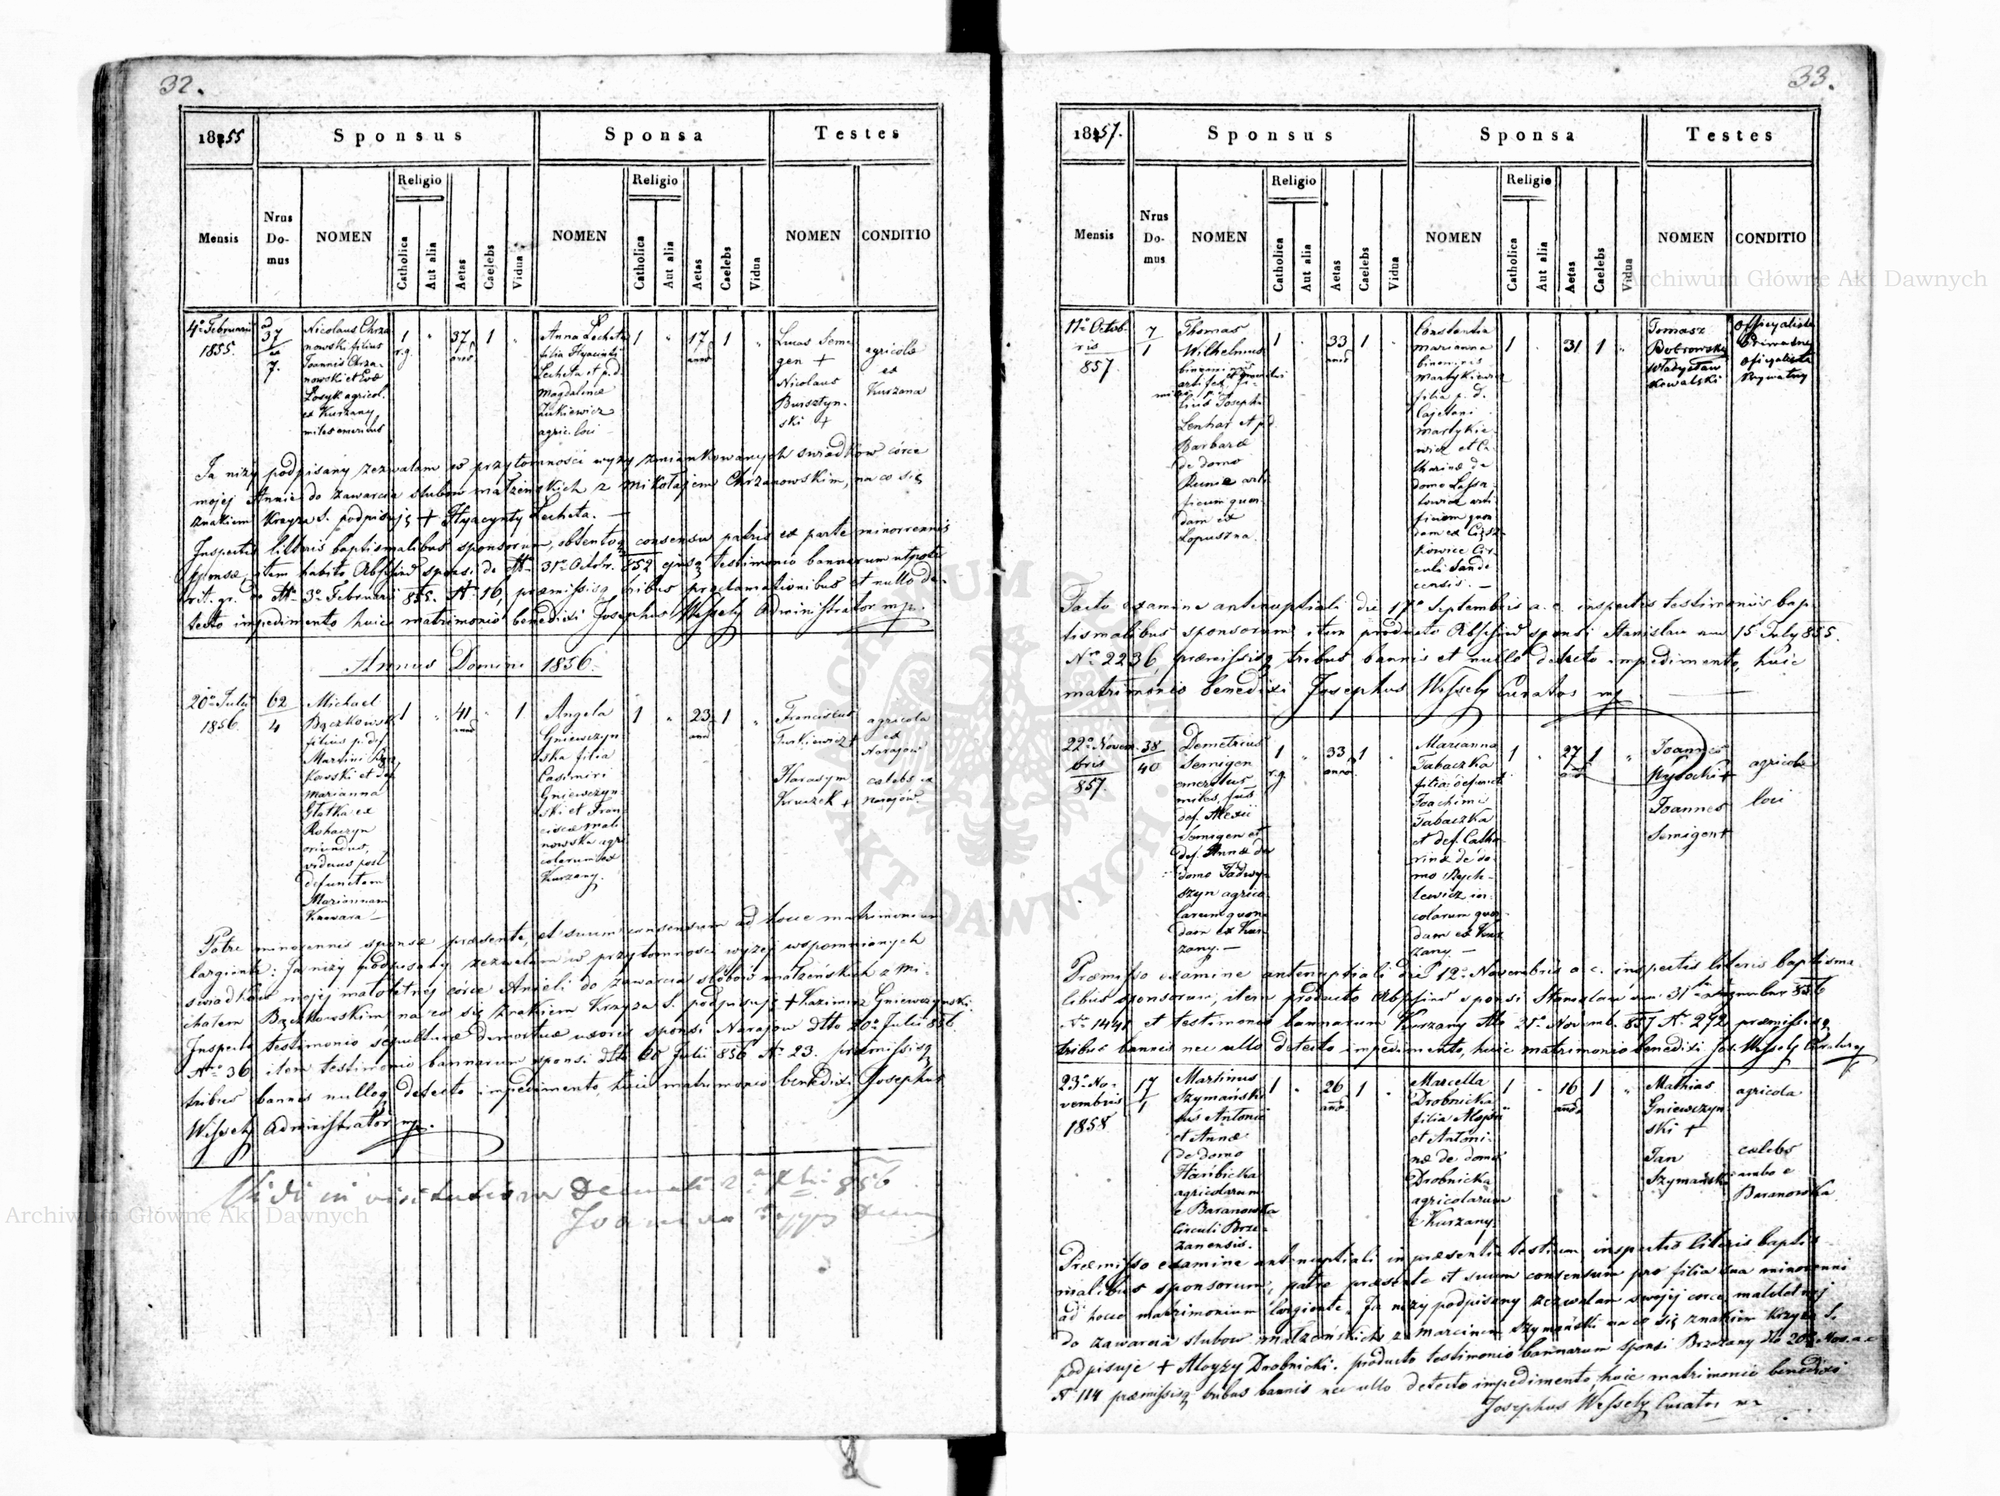 32.
1855
Sponsus
Sponsa
Testes
Mensis
Nrus Domus
NOMEN
Religio
Catholica
Aut alia
Aetas
Caelebs
Vidua
NOMEN
Religio
Catholica
Aut alia
Aetas
Caelebs
Vidua
NOMEN
CONDITIO
4º Februarii
1855.
ad
37
ex
7.
Nicolaus Chrza
nowski filius
Joannis Chrza-
nowski et Evæ
Łosyk agricol.
ex Kurzany
miles emeritus
1
r.g.
"
37
annor
1
"
Anna Lecheta
filia Hyacinti
Lecheta et p.d.
Magdalinæ
Żukiewicz
agric. loci
1
"
17
annor
1
"
Lucas Semi-
gen +
Nicolaus
Bursztyn-
ski +
agricolæ
ex
Kurzana
Ja niży podpisany zezwalam w przytomności wyży zmiankowanych swiadków córce
mojej Annie do zawarcia slubów małżeńskich z Mikołajem Chrzanowskim, na co się
znakiem Krzyża S. podpisuję + Hyacynty Lecheta. —
Inspectis litteris baptismalibus sponsorum, obtentoq consensu patris ex parte minorennis
sponsæ, item habito Abschied sponsi de dtto 31º Octobr. 852 ejusq testimonio bannorum ut pote
rit. gr. de dtto 3º Februarii 855. Nº 16, præmissisq tribus proclamationibus et nullo de-
tecto impedimento huic matrimonio benedixi Josephus Wessely Administrator mp.
Annus Domini 1856.
20º Julii
1856.
62
4
Michael
Bączkowski
filius p. def.
Martini Bącz
kowski et def
Marianna
Glatka ex
Rohaczyn
oriundus,
viduus post
defunctam
Mariannam
Knewara —
1
"
41
annor
"
1
Angela
Gniewczyn
ska filia
Casimiri
Gniewczyn
ski et Fran
ciscæ Mali
nowska agri
colarum ex
Kurzany.
1
"
23
annor
1
"
Franciscus
Turkiewicz +
Harasym
Kruczek +
agricola
ex
Narajow
cælebs ex
Narajów.
Patre minorennis sponsæ præsente, et suum consensum ad hocce matrimonium
largiente: Ja niży podpisany zezwalam w przytomności wyżej wspomnianych
swiadków mojej małoletnéj córce Anieli do zawarcia slóbów małżeńskich z Mi-
chałem Bączkowskim, na co się znakiem Krzyża S. podpisuję + Kazimirz Gniewczynski.
Inspecto testimonio sepulturæ demortuæ uxoris sponsi Narajow dtto 20º Julii 856
Nro 36 item testimonio bannorum sponsi dtto 20 Julii 856 Nº 23. præmissisq
tribus bannis nulloq detecto impedimento, huic matrimonio benedixi Josephus
Wessely Administrator mp.
Vidi in visitatione Decanali
856
33.
1857.
Sponsus
Sponsa
Testes
Mensis
Nrus Domus
NOMEN
Religio
Catholica
Aut alia
Aetas
Caelebs
Vidua
NOMEN
Religio
Catholica
Aut alia
Aetas
Caelebs
Vidua
NOMEN
CONDITIO
11º Octob-
ris
857.
7
1
Thomas
Wilhelmus
binomius
artifex
lius Josephi
Lenhar et p.d.
Barbaræ
de domo
arti
ficum quon
dam ex
Łopuszna.
1
"
33
annor
1
"
Constantia
Marianna
binominis
Martykiewicz
filia p. d.
Cajetani
Martykie-
wicz et Ca-
tharinæ de
domo
arti
ficum quon
dam ex Cięż-
kowice Cir-
culi Sande-
censis. —
1
"
31
1
"
Tomasz
Botrowski
Władysław
Kowalski
Officyalista
Oficyalista
Prywatny
Facto examine antenuptiali die 17º Septembris a. c. inspectis testimoniis bap-
tismalibus sponsorum, item producto Abschied sponsi Stanislau am 15 July 855.
Nº 2236, præmissisq tribus bannis et nullo detecto impedimento, huic
matrimonio benedixi Josephus Wessely Curatus mp
22º Novem-
bris
857.
38
40
Demetrius
Semigen
emeritus
miles, filius
def. Alexii
Semigen et
def. Annæ de
domo Fadwy-
szyn agrico-
larum quon
dam ex Kur-
zany. —
1
r.g.
"
33
annor
1
"
Marianna
Tabaczka
filia defuncti
Joachimi
Tabaczka
et def. Catha
rinæ de do-
mo Rych-
lewicz in-
colarum quon
dam ex Kur
zany. —
1
"
27
annor
1
"
Joannes
Wysocki +
Joannes
Semigen +
agricolæ
loci
Præmisso examine antenuptiali die 12º Novembris a. c. inspectis literis baptisma-
libus sponsorum, item producto Abschied sponsi Stanislau am 31ten Dezember 856
Nº 1441 et testimonio bannorum Kurzany dtto 21º Novemb. 857 Nº 292 præmissisq
tribus bannis nec ullo detecto impedimento, huic matrimonio benedixi Jos. Wessely Curatus mp
23º No-
vembris
1858
17
1
Martinus
Szymański
filius Antonii
et Annæ
de domo
Hanbicka
agricolarum
e Baranowka
Circuli Brze-
zanensis.
1
"
26
annor
1
"
Marcella
Drobnicka
filia Aloysii
et Antoni-
næ de domo
Drobnicka
agricolarum
e Kurzany.
1
"
16
annor
1
"
Mathias
Gniewczyn
ski +
Jan
Szymański
agricola
cælebs
ambo e
Baranowka
Præmisso examine antenuptiali in præsentia testium, inspectis literis baptis-
malibus sponsorum, patre præsente et suum consensum pro filia sua minorenni
ad hocce matrimonium largiente. Ja niży podpisany zezwalam swojéj córce małoletniej
do zawarcia slubów małżeńskich z Marcinem Szymański na co się znakiem Krzyża S.
podpisuje + Aloyzy Drobnicki. producto testimonio bannorum sponsi Brzeżany dtto 20º Nov. a. c.
Nº 114 præmissisq tribus bannis nec ullo detecto impedimento, huic matrimonio benedixi
Josephus Wessely Curatus mp
Archiwum Główne Akt Dawnych
Archiwum Główne Akt Dawnych
ARCHIWUM GŁÓWNE AKT DAWNYCH